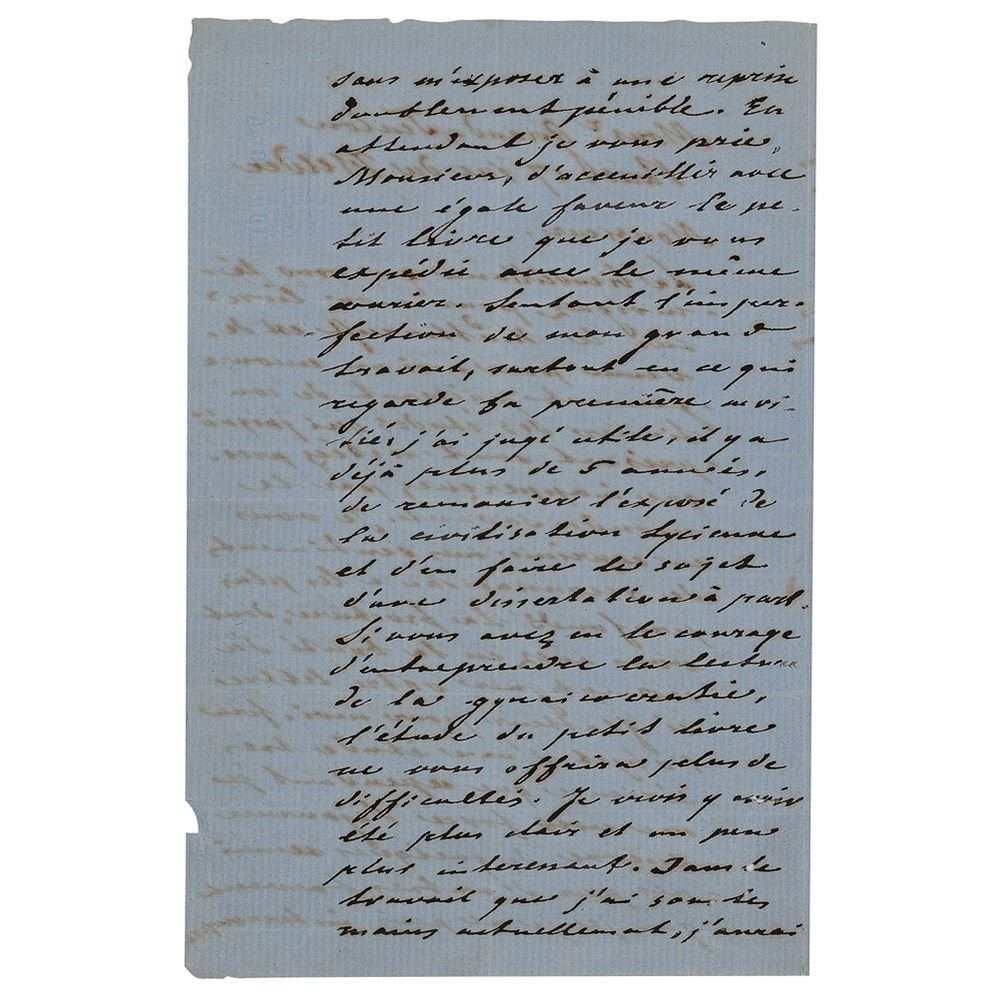 sans m'exposer à une reprise
doublement pénible. En
attendant je vous prie,
Monsieur, d'acceuillir avec
une égale faveur le pe-
tit livre que je vous
expédie avec le même
courier. Sentant l'imper-
fection de mon grand
travail, surtout en ce qui
regarde la première moi-
tié, j'ai jugé utile, il y a
déjà plus de 5 années,
de remanier l'exposé de
la civilisation lycienne
et d'en faire le sujet
d'une dissertation à part.
Si vous avez eu le courage
d'entreprendre la lecture
de la gynaicocratie,
l'étude du petit livre
ne vous offrira plus de
difficultés. Je crois y avoir
été plus clair et un peu
plus interessant. Dans le
travail que j'ai sous les
mains actuellement, j'aurai